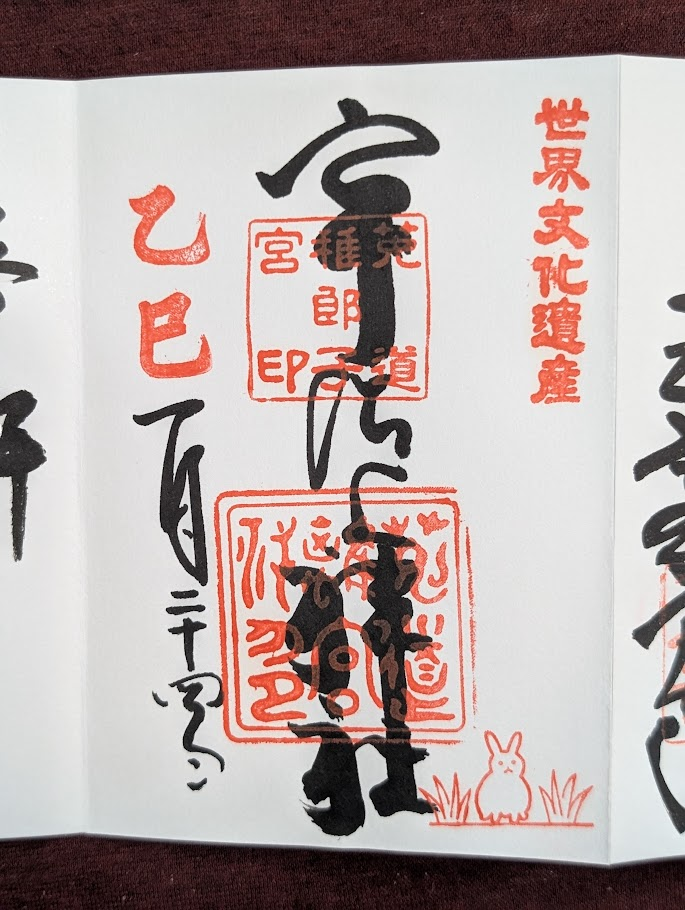 世界文化遺産
宇治上神社
菟道
稚郎子
宮印
乙巳一月二十四日